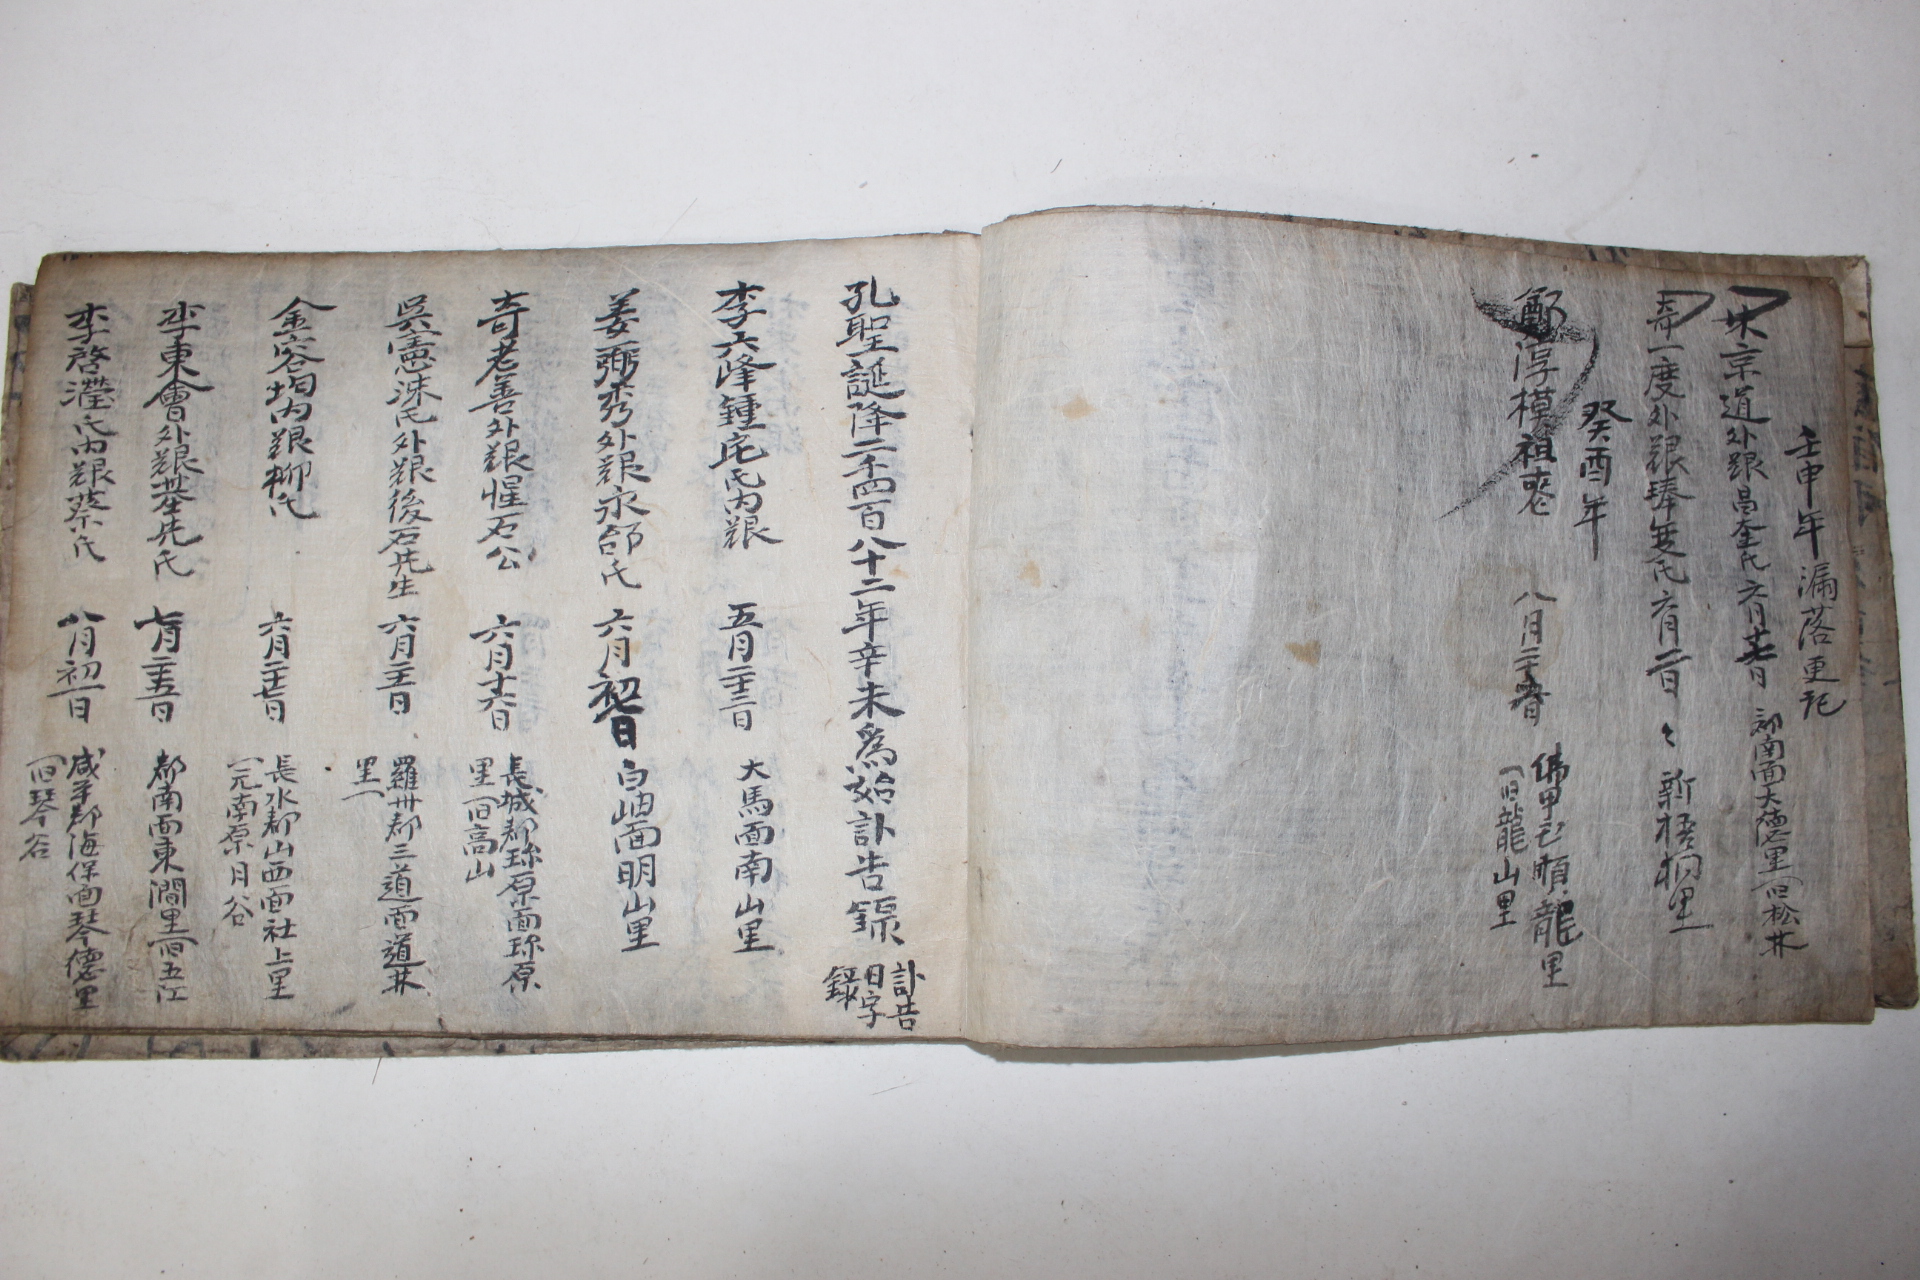 壬申年漏落更記
宋京道外艱昌奎氏 六月廿七日 郡南面大德里(旧松林
奇一度外艱琫燮氏 六月二日 〻 新梧桐里
癸酉年
鄭淳模祖喪 八月二十六日 順龍里
(旧龍山里
孔聖誕降二千四百八十二年辛未爲始訃告錄
訃告
日字
錄
李六峰鍾宅氏內艱 五月二十三日 大馬面南山里
姜弼秀外艱永郃氏 六月初四日 白岫面明山里
奇老善外艱惺石公 六月十六日 長城郡珍原面珍原
里(旧高山
吳憲洙氏外艱後石先生 六月二十三日 羅州郡三道面道林
里
金容均內艱柳氏 六月二十七日 長水郡山西面社上里
(元南原月谷
李東會外艱基先氏 七月二十五日 郡南面東澗里(旧五江
李啓瀅氏內艱蔡氏 八月初一日 咸平郡海保面琴德里
(旧琴谷